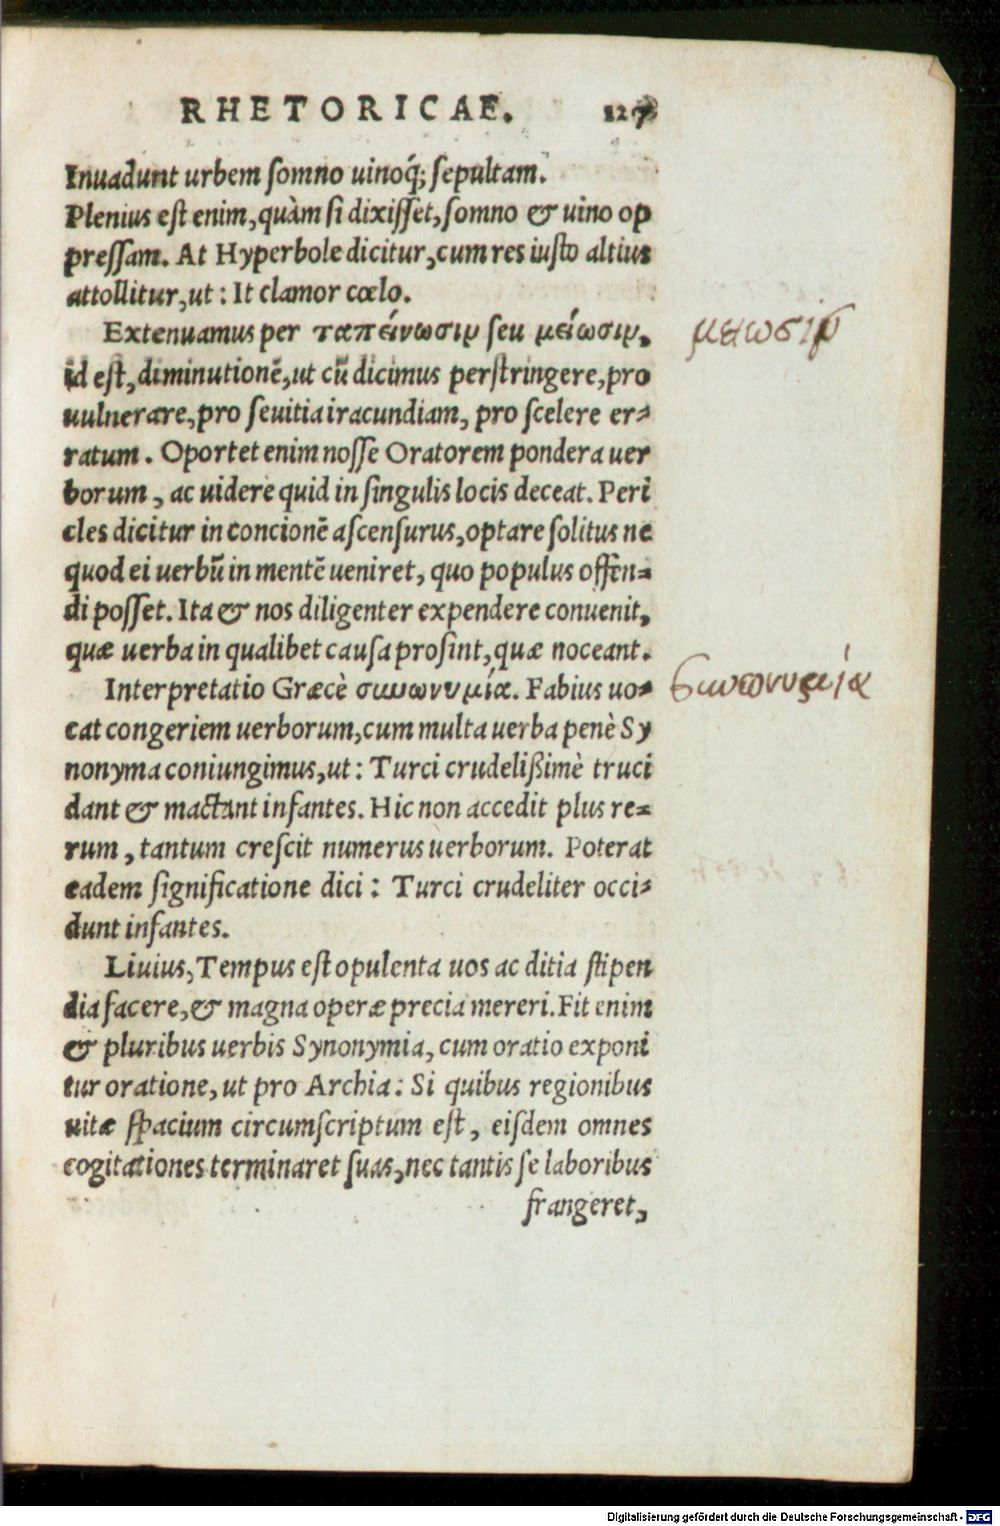 RHETORICAE. 127
Inuadunt urbem ſomno uinoq́; ſepultam.
Plenius eſt enim, quàm ſi dixiſſet, ſomno & uino op
preſſam. At Hyperbole dicitur, cum res iuſto altius
attollitur, ut: It clamor cœlo.
Extenuamus per ταπείνωσιν ſeu μείωσιν,
id eſt, diminutionẽ, ut cũ dicimus perſtringere, pro
uulnerare, pro ſeuitia iracundiam, pro ſcelere er-
ratum. Oportet enim noſſe Oratorem pondera uer
borum, ac uidere quid in ſingulis locis deceat. Peri
cles dicitur in concionẽ aſcenſurus, optare ſolitus ne
quod ei uerbũ in mentẽ ueniret, quo populus offen-
di poſſet. Ita & nos diligenter expendere conuenit,
quæ uerba in qualibet cauſa proſint, quæ noceant.
Interpretatio Græcè συνωνυμία. Fabius uo-
cat congeriem uerborum, cum multa uerba penè Sy
nonyma coniungimus, ut: Turci crudelißimè truci
dant & mactant infantes. Hic non accedit plus re-
rum, tantum creſcit numerus uerborum. Poterat
eadem ſignificatione dici: Turci crudeliter occi-
dunt infantes.
Liuius, Tempus eſt opulenta uos ac ditia ſtipen
dia facere, & magna operæ precia mereri. Fit enim
& pluribus uerbis Synonymia, cum oratio exponi
tur oratione, ut pro Archia: Si quibus regionibus
uitæ ſpacium circumſcriptum eſt, eiſdem omnes
cogitationes terminaret ſuas, nec tantis ſe laboribus
frangeret,
μειωσιν
συνωνυμία
Digitalisierung gefördert durch die Deutsche Forschungsgemeinschaft - DFG